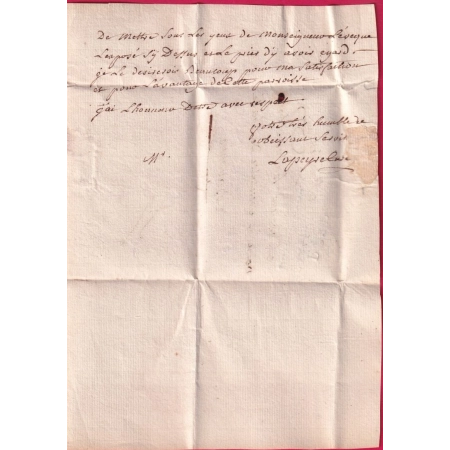 de mettre sous les yeux de monseigneur L'evêque
L'exposé Sy Dessus et le prier d'y avoir egard
je le desirerois Beaucoup pour ma satisfaction
et pour L'avantage de Cette parroisse
j'ai L'honneur D'etre avec respect
Votre très humble &
obeissant Serv
Mr.